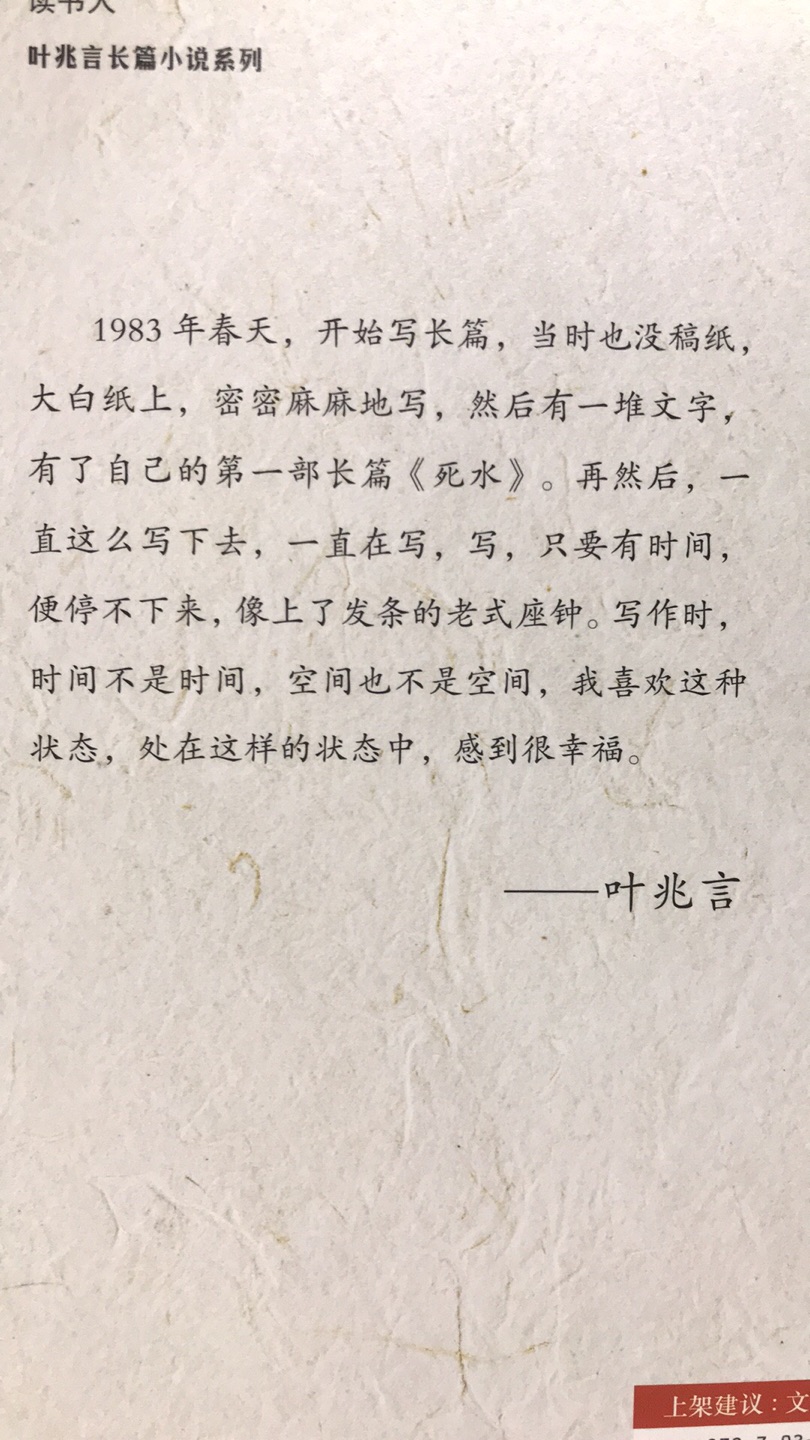 读书人
叶兆言长篇小说系列
1983 年春天，开始写长篇，当时也没稿纸，
大白纸上，密密麻麻地写，然后有一堆文字，
有了自己的第一部长篇《死水》。再然后，一
直这么写下去，一直在写，写，只要有时间，
便停不下来，像上了发条的老式座钟。写作时，
时间不是时间，空间也不是空间，我喜欢这种
状态，处在这样的状态中，感到很幸福。
——叶兆言
上架建议：文